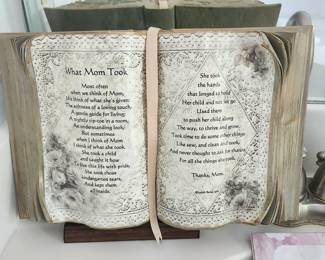 What Mom Took
Most often
when we think of Mom,
We think of what she's given:
The softness of a loving touch
A gentle guide for living;
A nightly tip-toe in a room,
An understanding look;
But sometimes
when I think of Mom
I think of what she took.
She took a child
and taught it how
To live this life with pride,
She took those
kindergarten tears,
And kept them
all inside.
She took
the hands
that longed to hold
Her child and not let go
Used them
to push her child along
The way, to thrive and grow;
Took time to do some other things
Like sew, and clean and cook;
And never thought to ask for thanks
For all the things she took.
Thanks, Mom.